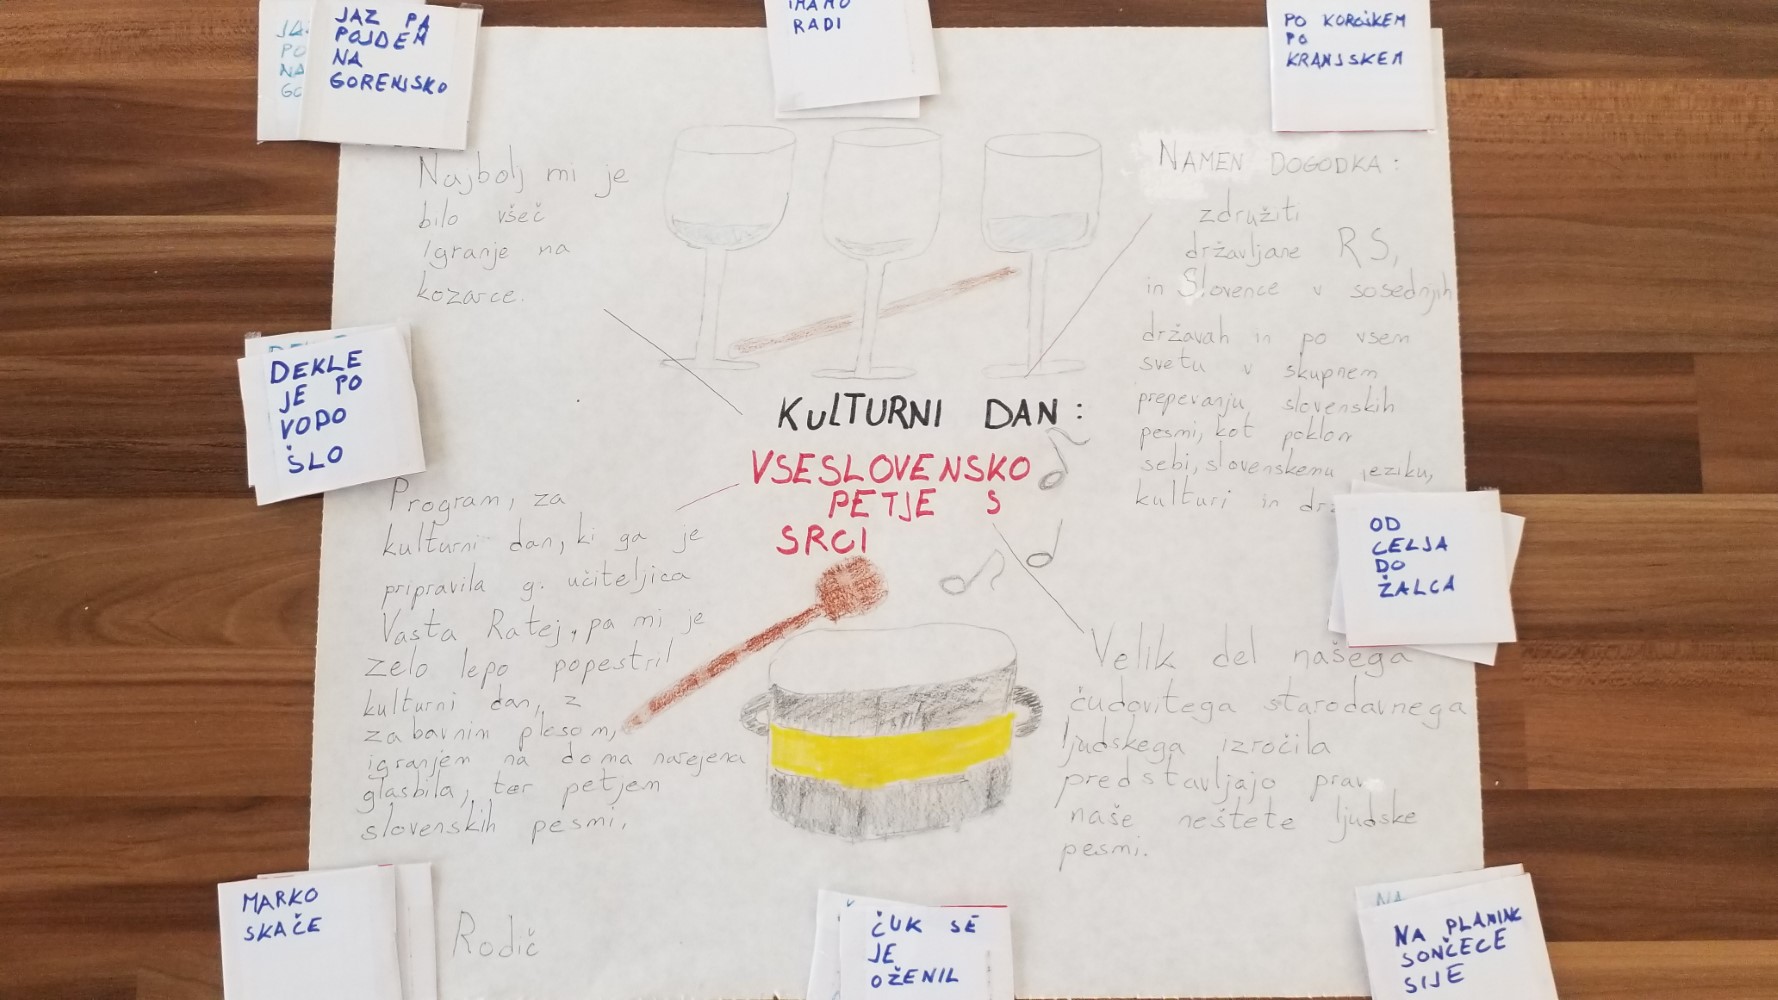 JAZ PA
POJDEM
NA
GORENJSKO
IMAMO
RADI
PO KOROŠKEM
PO
KRANJSKEM
Najbolj mi je
bilo všeč
igranje na
kozarce.
NAMEN DOGODKA:
združiti
državljane RS,
in Slovence v sosednjih
državah in po vsem
svetu v skupnem
prepevanju slovenskih
pesmi, kot poklon
sebi, slovenskemu jeziku,
kulturi in
DEKLE
JE PO
VODO
ŠLO
KULTURNI DAN:
VSESLOVENSKO
PETJE S
SRCI
OD
CELJA
DO
ŽALCA
Program, za
kulturni dan, ki ga je
pripravila g. učiteljica
Vasta Ratej, pa mi je
zelo lepo popestril
kulturni dan, z
zabavnim plesom,
igranjem na doma narejena
glasbila, ter petjem
slovenskih pesmi.
Velik del našega
čudovitega starodavnega
ljudskega izročila
predstavljajo prav
naše neštete ljudske
pesmi.
MARKO
SKAČE
Rodič
ČUK SE
JE
OŽENIL
NA
NA PLANINK
SONČECE
SIJE